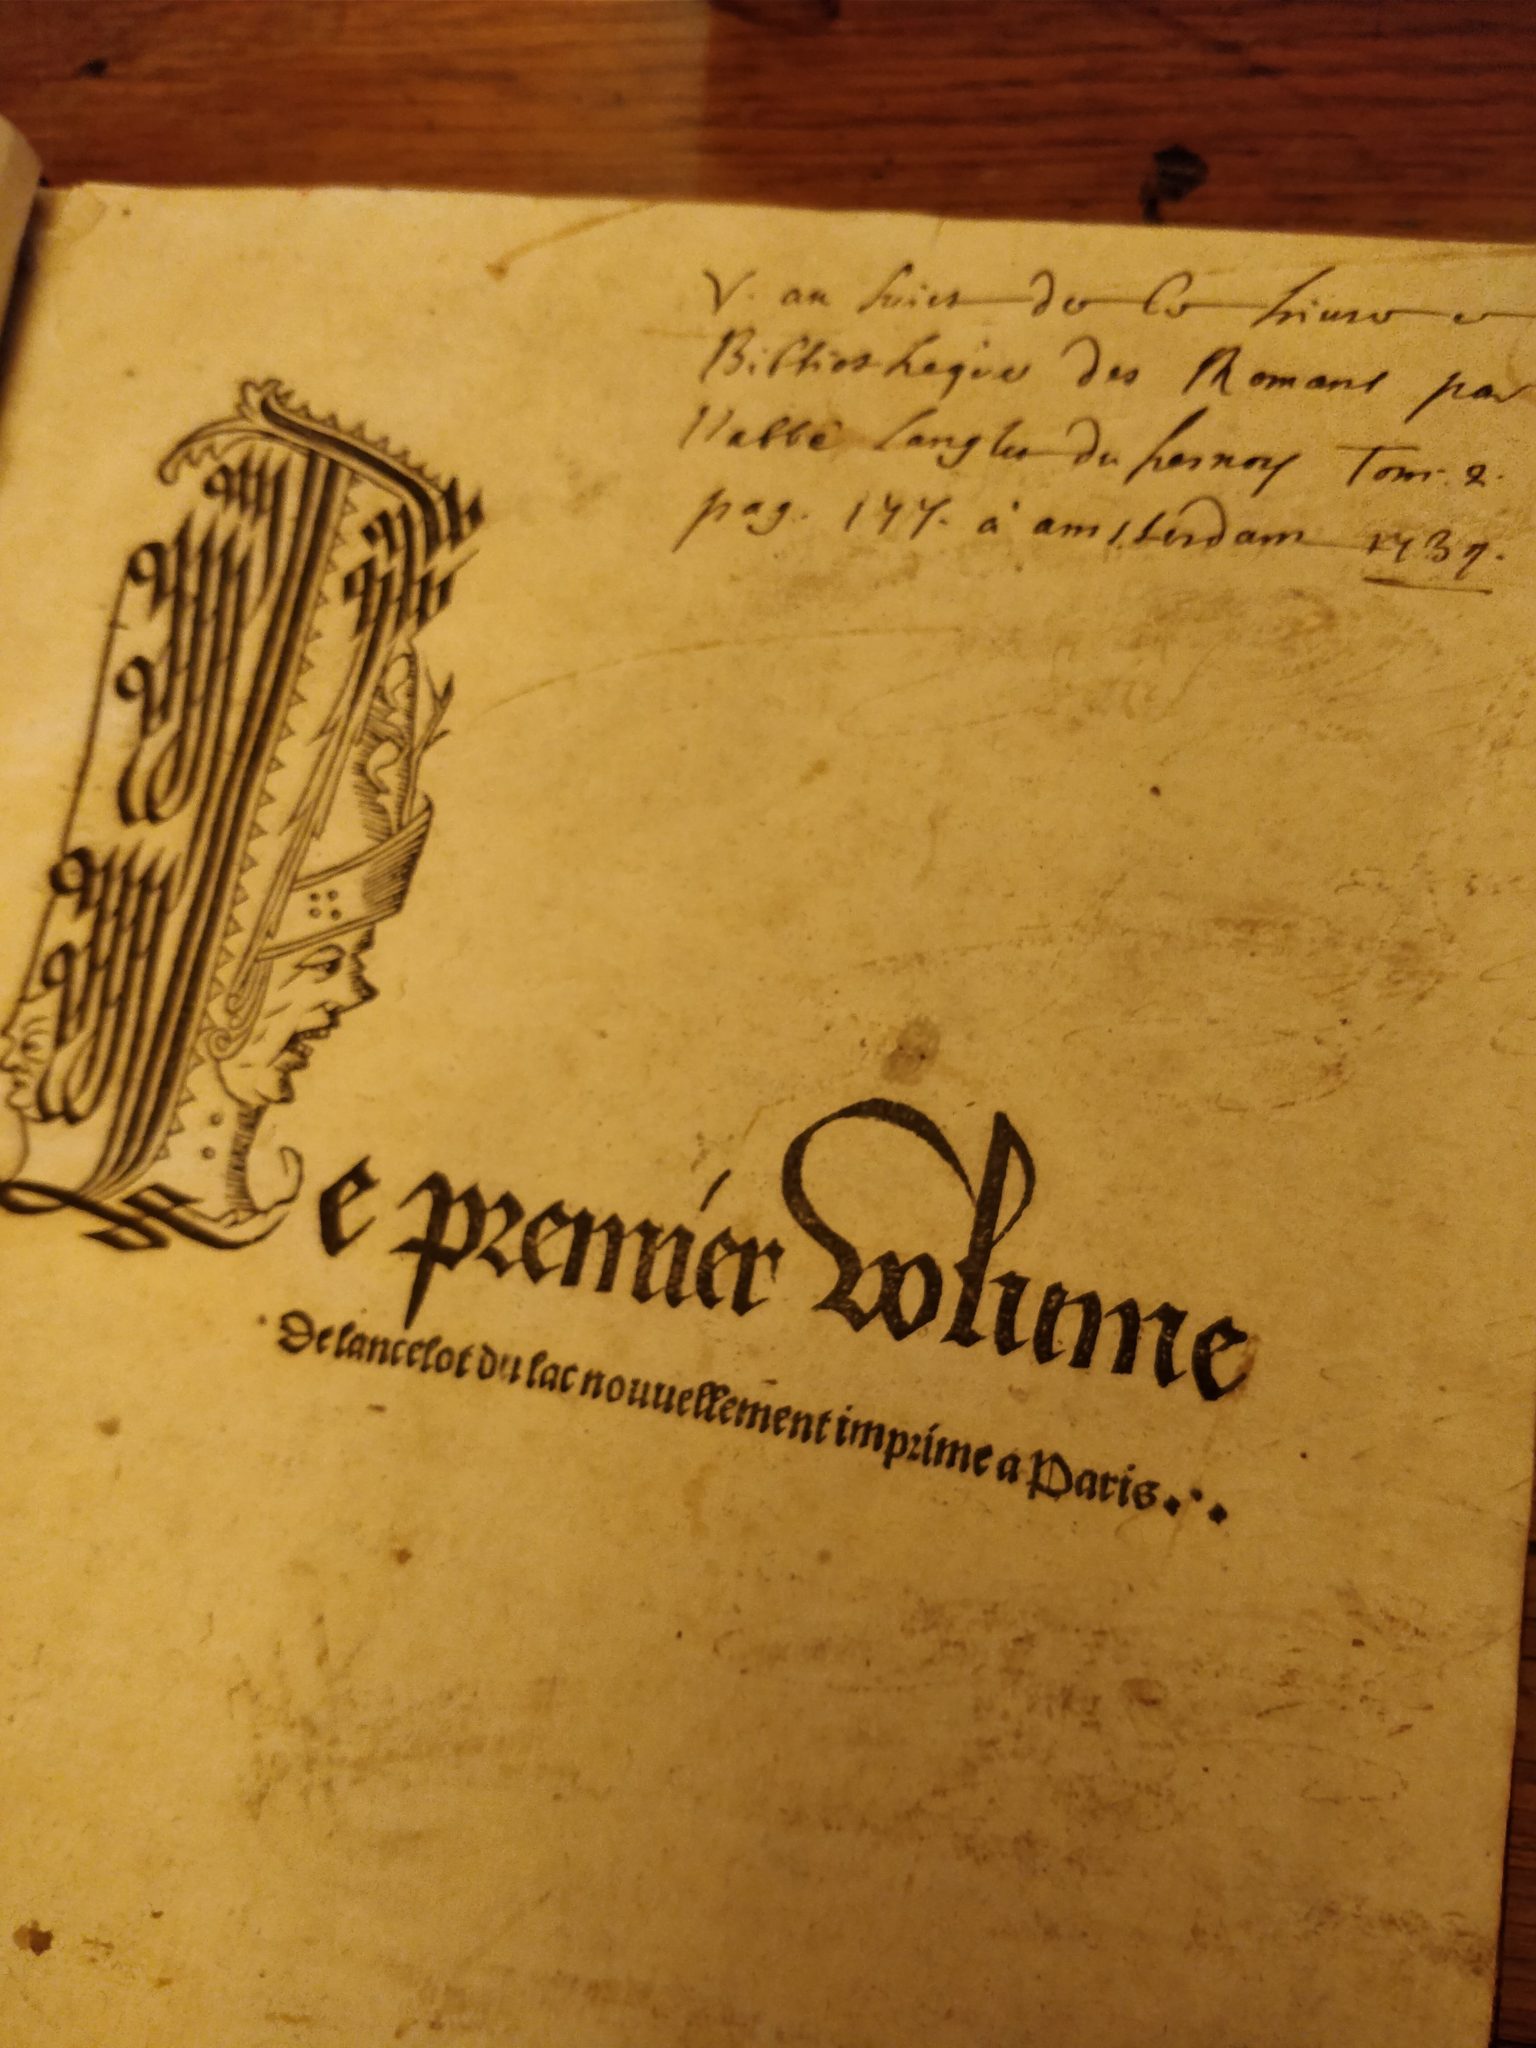 V. au suiet de ce livre
Bibliotheque des Romans par
l'abbé Langlet du fresnoy Tom. 2.
pag. 177. à amsterdam 1737.
Le premier volume
De lancelot du lac nouuellement imprime a Paris.